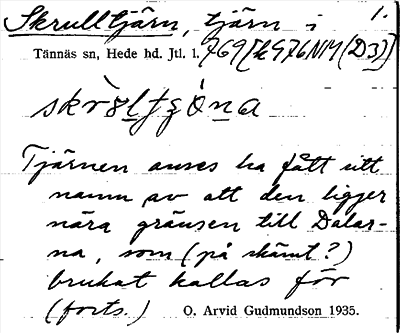 Skrulltjärn, tjärn i 1.
Tännäs sn, Hede hd. Jtl. l. 769 [k 976 NM (D3)]
Tjärnen anses ha fått sitt
namn av att den ligger
nära gränsen till Dalar-
na, som (på skämt?)
brukat kallas för
(forts.) O. Arvid Gudmundson 1935.